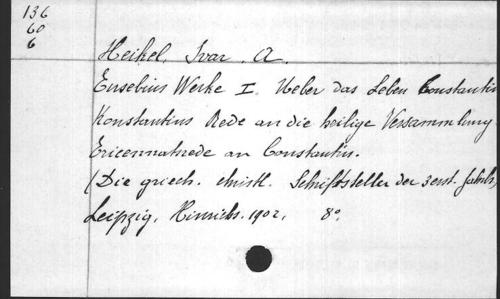 136
60
6
Heikel, Ivar. A.
Eusebius Werke I. Ueber das Leben Constantin
Konstantins Rede an die heilige Versammlung
Tricennatsrede an Constantin.
(Die griech. christl. Schriftsteller der 3 erst. Jahrh.
Leipzig, Hinrichs. 1902. 8°.